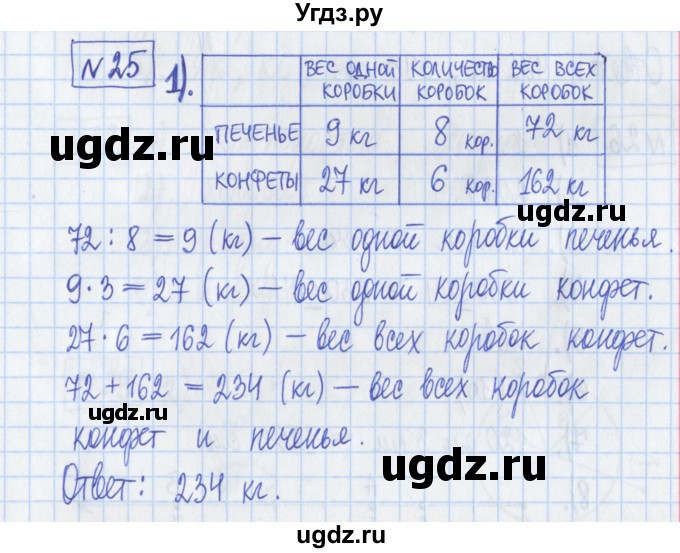 Угдз.ру
№25
1).
ВЕС ОДНОЙ КОРОБКИ | КОЛИЧЕСТВО КОРОБОК | ВЕС ВСЕХ КОРОБОК
ПЕЧЕНЬЕ | 9 кг | 8 кор. | 72 кг
КОНФЕТЫ | 27 кг | 6 кор. | 162 кг
ugdz.ru
ugdz.ru
72 : 8 = 9 (кг) – вес одной коробки печенья.
9 · 3 = 27 (кг) – вес одной коробки конфет.
27 · 6 = 162 (кг) – вес всех коробок конфет.
72 + 162 = 234 (кг) – вес всех коробок
ugdz.ru
конфет и печенья.
ugdz.ru
Ответ: 234 кг.
ugdz.ru